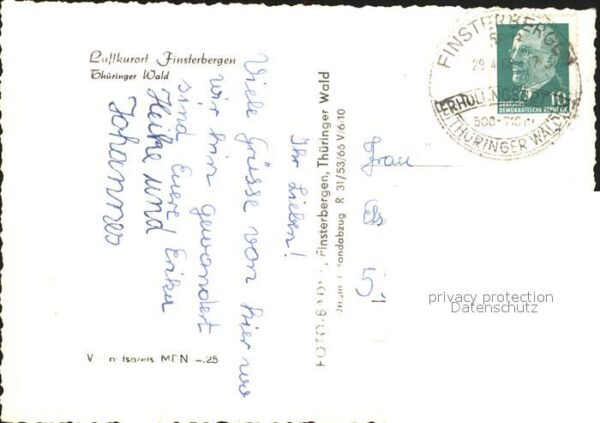 Luftkurort Finsterbergen
Thüringer Wald
Ihr Lieben!
Viele Grüsse von hier wo
wir hin gewandert
sind Euere Erika
Heike und
Johannes
Finsterbergen, Thüringer Wald
Handabzug R 31/53/66 V/6/10
MDN -.25
FINSTERBERGEN
ERHOLUNGSORT
500-710 m
THÜRINGER WALD
10
DEUTSCHE
DEMOKRATISCHE REPUBLIK
Frau
privacy protection
Datenschutz